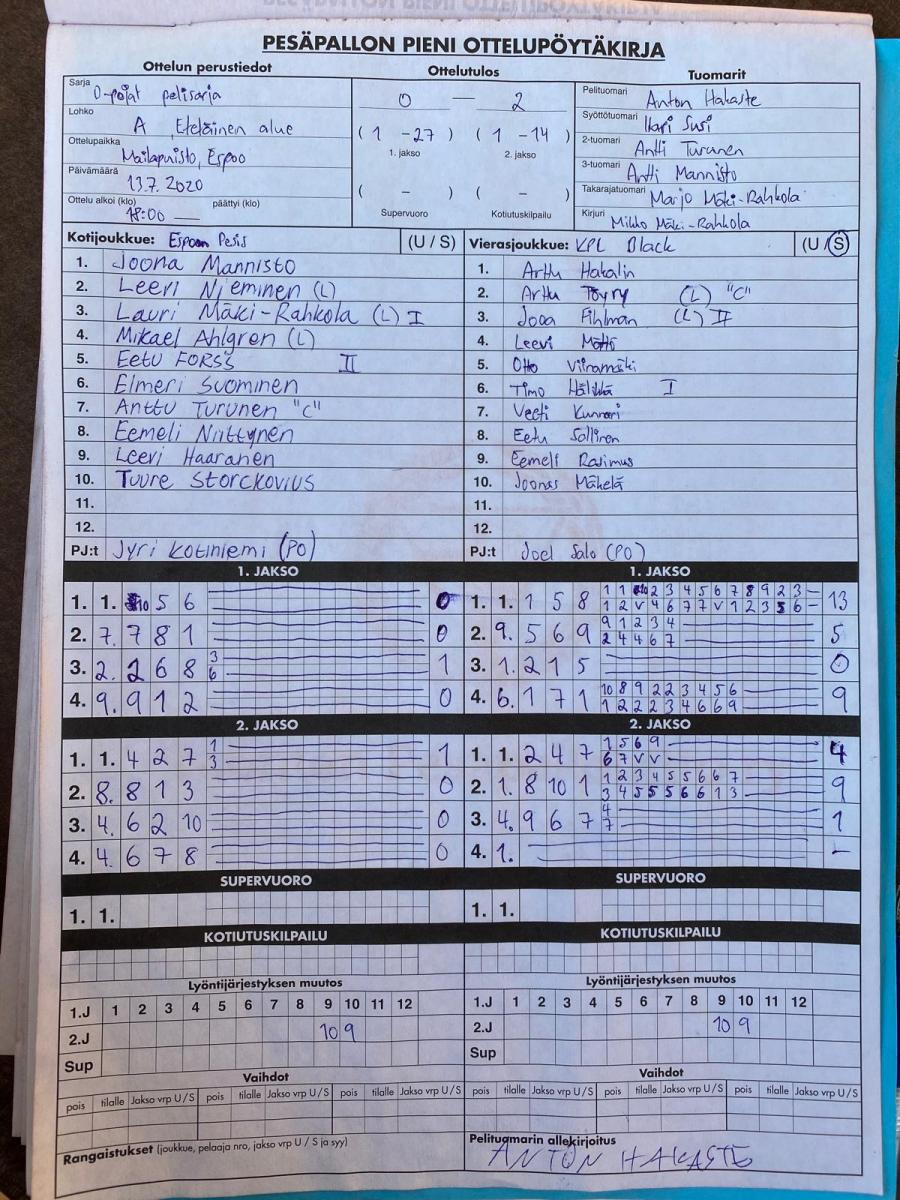 PESÄPALLON PIENI OTTELUPÖYTÄKIRJA
Ottelun perustiedot
Ottelutulos
Tuomarit
Sarja D-pojat pelisarja
Lohko A Eteläinen alue
Ottelupaikka Mailapuisto, Espoo
Päivämäärä 13.7. 2020
Ottelu alkoi (klo) 18:00 päättyi (klo)
0 — 2
( 1 - 27 ) ( 1 - 14 )
1. jakso 2. jakso
( - ) ( - )
Supervuoro Kotiutuskilpailu
Pelituomari Anton Hakaste
Syöttötuomari Ilari Susi
2-tuomari Antti Turunen
3-tuomari Antti Mannisto
Takarajatuomari Marjo Mäki-Rahkola
Kirjuri Mikko Mäki-Rahkola
Kotijoukkue: Espoon Pesis (U / S)
1. Joona Mannisto
2. Leevi Nieminen (L)
3. Lauri Mäki-Rahkola (L) I
4. Mikael Ahlgren (L)
5. Eetu FORSS II
6. Elmeri Suominen
7. Anttu Turunen "C"
8. Eemeli Niittynen
9. Leevi Haaranen
10. Tuure Storckovius
11.
12.
PJ:t Jyri Kotiniemi (PO)
Vierasjoukkue: KPL Black (U / S)
1. Arttu Hakalin
2. Arttu Töyry (L) "C"
3. Jooa Fihlman (L) II
4. Leevi
5. Otto Viiramäki
6. Timo I
7. Veeti Kunnari
8. Eetu Sallinen
9. Eemeli Rasimus
10. Joonas Mäkelä
11.
12.
PJ:t Joel Salo (PO)
1. JAKSO
1. 1. 10 5 6 0
2. 7. 7 8 1 0
3. 2. 2 6 8 3 1
6
4. 9. 9 1 2 0
2. JAKSO
1. 1. 4 2 7 1 1
3
2. 8. 8 1 3 0
3. 4. 6 2 10 0
4. 4. 6 7 8 0
SUPERVUORO
1. 1.
KOTIUTUSKILPAILU
Lyöntijärjestyksen muutos
1.J 1 2 3 4 5 6 7 8 9 10 11 12
2.J 10 9
Sup
Vaihdot
pois tilalle Jakso vrp U / S pois tilalle Jakso vrp U / S pois tilalle Jakso vrp U / S
Rangaistukset (joukkue, pelaaja nro, jakso vrp U / S ja syy)
1. JAKSO
1. 1. 1 5 8 1 1 10 2 3 4 5 6 7 8 9 2 3 – 13
1 2 V 4 6 7 7 V 1 2 3 5 6 –
2. 9. 5 6 9 9 1 2 3 4 5
2 4 4 6 7
3. 1. 2 1 5 0
4. 6. 1 7 1 10 8 9 2 2 3 4 5 6 9
1 2 2 2 3 4 6 6 9
2. JAKSO
1. 1. 2 4 7 1 5 6 9 4
6 7 V V
2. 1. 8 10 1 1 2 3 4 5 5 6 6 7 9
3 4 5 5 5 6 6 1 3
3. 4. 9 6 7 4 1
7
4. 1. –
SUPERVUORO
1. 1.
KOTIUTUSKILPAILU
Lyöntijärjestyksen muutos
1.J 1 2 3 4 5 6 7 8 9 10 11 12
2.J 10 9
Sup
Vaihdot
pois tilalle Jakso vrp U / S pois tilalle Jakso vrp U / S pois tilalle Jakso vrp U / S
Pelituomarin allekirjoitus
ANTON HAKASTE